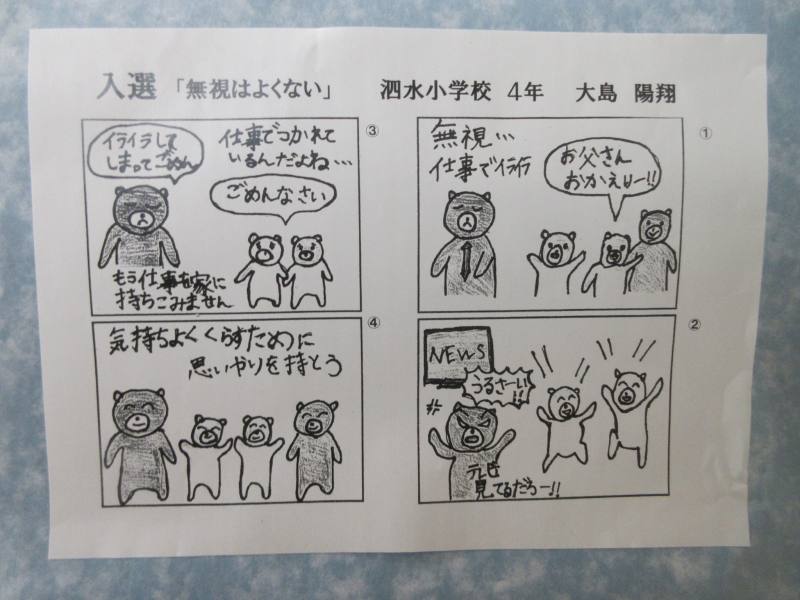 入選 「無視はよくない」 泗水小学校 4年 大島 陽翔
①
無視…
仕事でイライラ
お父さん
おかえりー!!
②
NEWS
うるさーい!!
テレビ
見てるだろー!!
③
イライラして
しまってごめん
仕事でつかれて
いるんだよね…
ごめんなさい
もう仕事を家に
持ちこみません
④
気持ちよくくらすために
思いやりを持とう